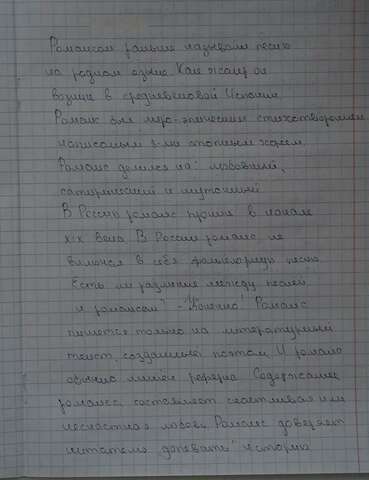 Романсом раньше называли песню
на родном языке. Как жанр он
возник в средневековой Испании
Романс был лиро-эпическим стихотворением
написаным 8-ми стопным хореем.
Романс делился на: любовный,
сатирический и шуточный
В Россию романс пришел в начале
XIX века. В России романс не
включал в себя фольклорную песню
Есть ли различие между песней
и романсом? - "Конечно" Романс
пишется только на литературный
текст, созданный поэтом. У романса
обычно нет рефрена Содержание
романса составляет счастливая или
несчастная любовь. Романс доверяет
читателю "допевать" историю